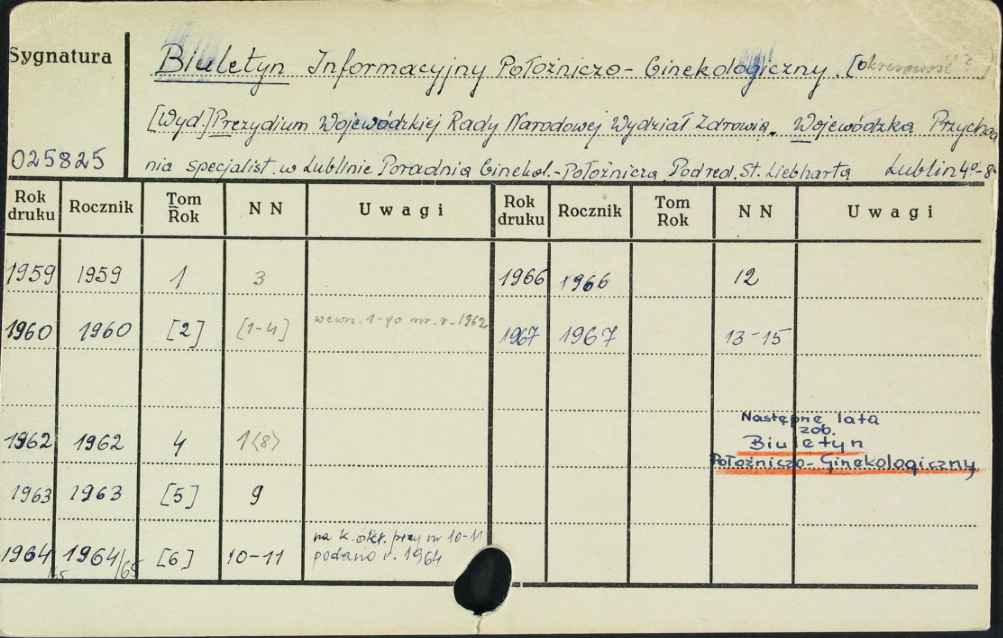 Sygnatura
Biuletyn Informacyjny Położniczo-Ginekologiczny. [okresowość ?]
[Wyd.] Prezydium Wojewódzkiej Rady Narodowej Wydział Zdrowia. Wojewódzka Przychod
025825
nia specjalist. w Lublinie Poradnia Ginekol.-Położnicza. Pod red. St. Liebharta Lublin 4º-8
Rok druku Rocznik Tom Rok NN Uwagi Rok druku Rocznik Tom Rok NN Uwagi
1959 1959 1 3 1966 1966 12
1960 1960 [2] [1-4] wewn. 1-go nr. r. 1962 1967 1967 13-15
Następne lata
zob.
1962 1962 4 1<8> Biuletyn
Położniczo-Ginekologiczny
1963 1963 [5] 9
na k. okł. przy nr 10-11
1964 1964/65 [6] 10-11 podano r. 1964